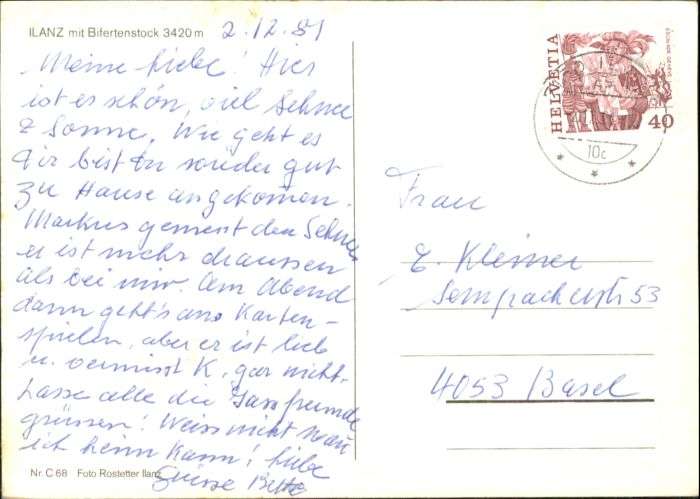 ILANZ mit Bifertenstock 3420 m
2.12.81
Meine liebe! Hier
ist es schön, viel Schnee
& Sonne. Wie geht es
Dir bist Du wieder gut
zu Hause angekomen.
Markus geniest den Schnee
er ist mehr draussen
als bei mir. Am Abend
dann geht's ans Karten-
spielen, aber er ist lieb
u. vermisst K. gar nicht.
Lasse alle die Jassfreunde
grüssen! Weiss nicht wan
ich heim kann! Liebe
Grüsse
Nr. C 68 Foto Rostetter Ilanz
HELVETIA
40
10c
Frau
E. Kleiner
Sempacherstr 53
4053 Basel